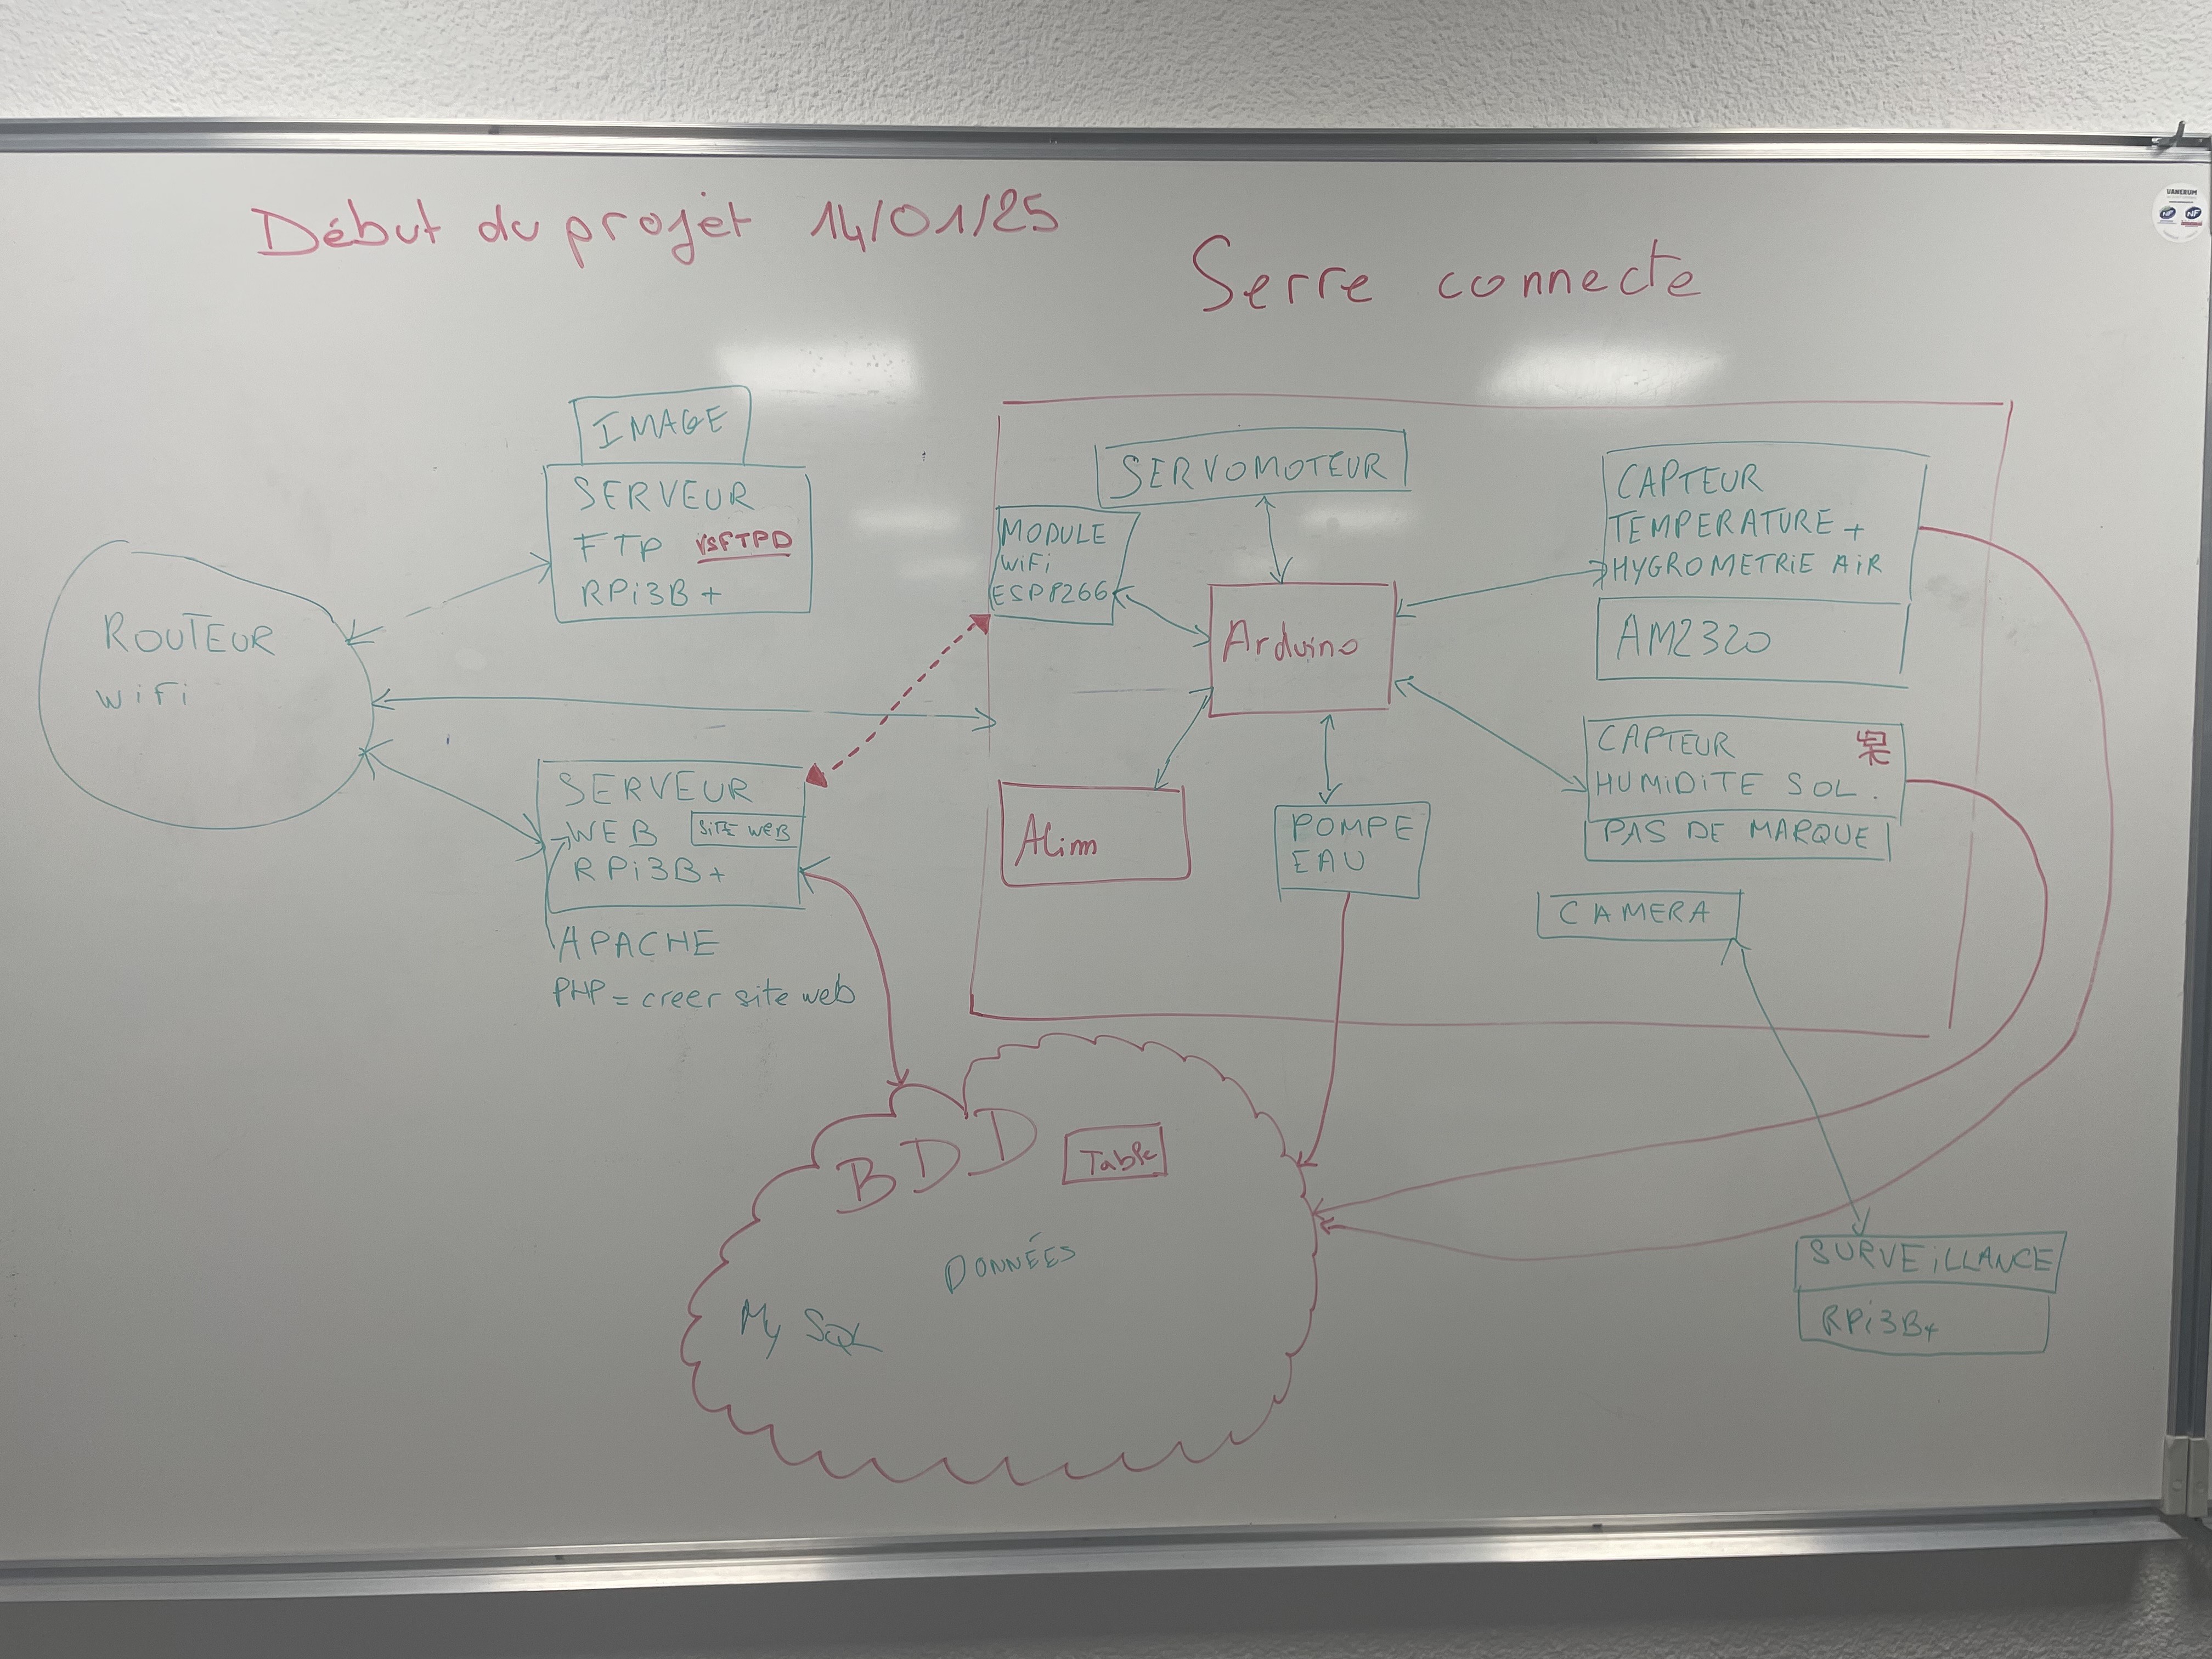 Début du projet 14/01/25
Serre connecte
IMAGE
SERVEUR
FTP VSFTPD
RPi3B+
ROUTEUR
WiFi
SERVEUR
WEB SITE WEB
RPi3B+
APACHE
PHP = creer site web
SERVOMOTEUR
MODULE
WiFi
ESP8266
Arduino
Alim
POMPE
EAU
CAPTEUR
TEMPERATURE +
HYGROMETRIE AIR
AM2320
CAPTEUR
HUMIDITE SOL.
PAS DE MARQUE
CAMERA
SURVEILLANCE
RPi3B+
BDD Table
DONNÉES
My SQL
VANERUM
NF NF